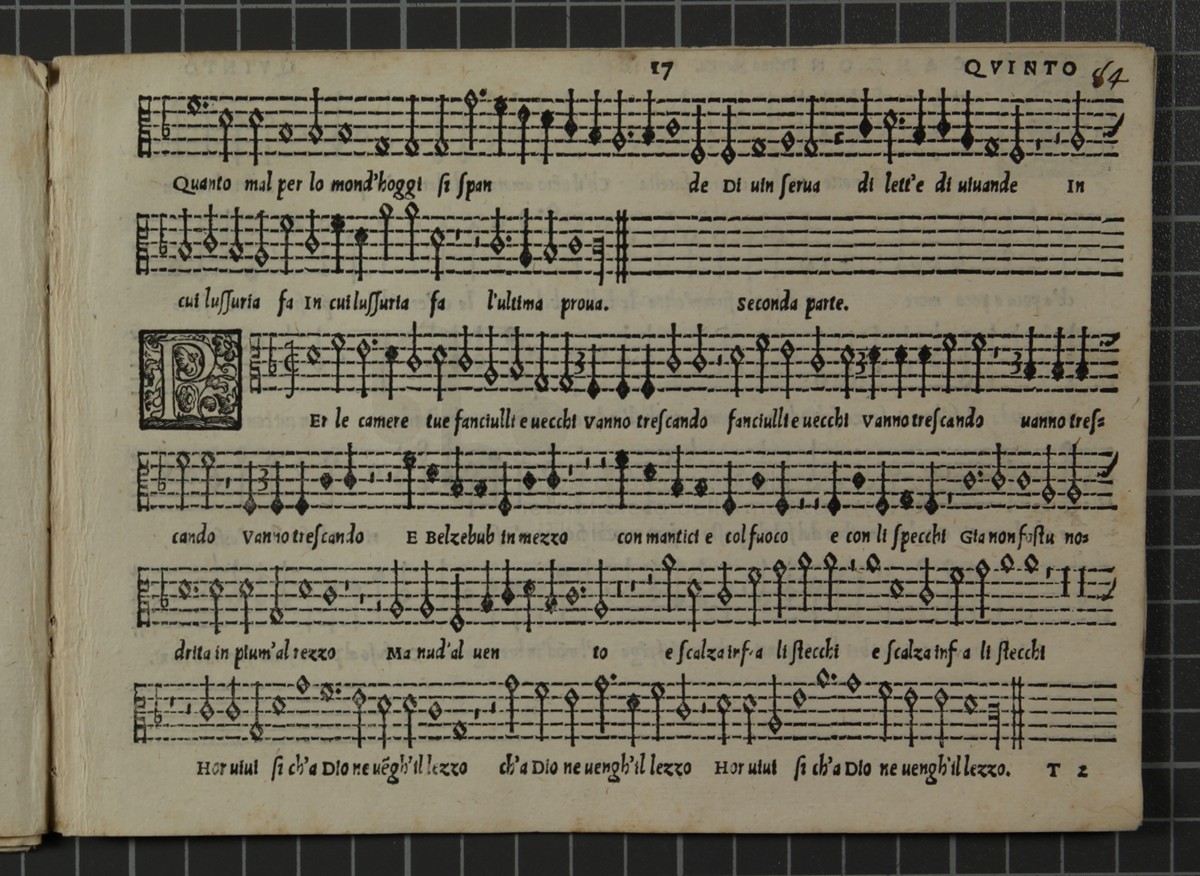 17 QVINTO 64
Quanto mal per lo mond'hoggi si span de Di uin serua di lett'e di uiuande In
cui lussuria fa In cui lussuria fa l'ultima proua. Seconda parte.
PEr le camere tue fanciulli e uecchi Vanno trescando fanciulli e uecchi Vanno trescando uanno tres=
cando Vanno trescando E Belzebub in mezzo con mantici e col fuoco e con li specchi Gia non fostu no=
drita in pium'al rezzo Ma nud'al uen to e scalza infra li stecchi e scalza infra li stecchi
Hor uiui si ch'a Dio ne uẽgh'il lezzo ch'a Dio ne uengh'il lezzo Hor uiui si ch'a Dio ne uengh'il lezzo. T 2